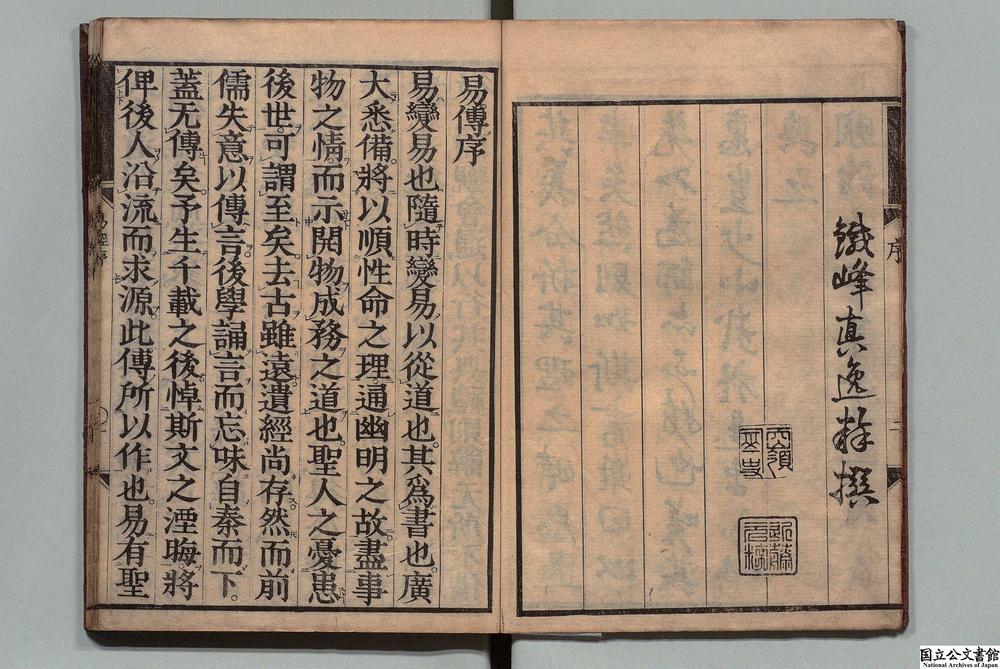 鐵峰真逸撰
序
二
易傳序
易變易也。隨時變易以從道也。其爲書也。廣
大悉備。將以順性命之理。通幽明之故。盡事
物之情。而示開物成務之道也。聖人之憂患
後世。可謂至矣。去古雖遠。遺經尚存。然而前
儒失意以傳言。後學誦言而忘味。自秦而下。
蓋无傳矣。予生千載之後。悼斯文之湮晦。將
俾後人沿流而求源。此傳所以作也。易有聖
易經序
国立公文書館
National Archives of Japan